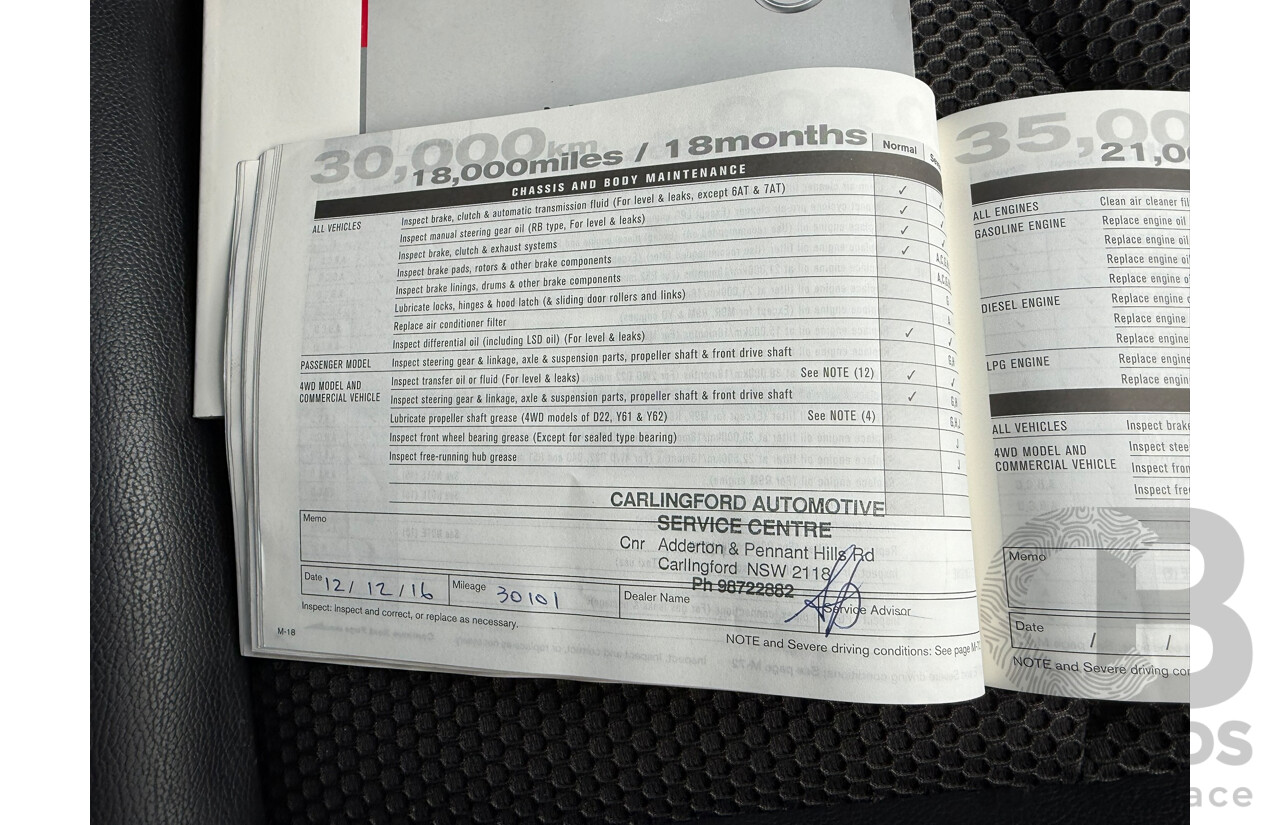 30,000km
18,000miles / 18months
Normal
CHASSIS AND BODY MAINTENANCE
ALL VEHICLES
Inspect brake, clutch & automatic transmission fluid (For level & leaks, except 6AT & 7AT) ✓
Inspect manual steering gear oil (RB type, For level & leaks) ✓
Inspect brake, clutch & exhaust systems ✓
Inspect brake pads, rotors & other brake components ✓
Inspect brake linings, drums & other brake components
Lubricate locks, hinges & hood latch (& sliding door rollers and links)
Replace air conditioner filter
Inspect differential oil (including LSD oil) (For level & leaks) ✓
PASSENGER MODEL
Inspect steering gear & linkage, axle & suspension parts, propeller shaft & front drive shaft
4WD MODEL AND
COMMERCIAL VEHICLE
Inspect transfer oil or fluid (For level & leaks) See NOTE (12) ✓
Inspect steering gear & linkage, axle & suspension parts, propeller shaft & front drive shaft ✓
Lubricate propeller shaft grease (4WD models of D22, Y61 & Y62) See NOTE (4)
Inspect front wheel bearing grease (Except for sealed type bearing)
Inspect free-running hub grease
CARLINGFORD AUTOMOTIVE
SERVICE CENTRE
Cnr Adderton & Pennant Hills Rd
Carlingford NSW 2118
Ph 98722882
Memo
Date 12/12/16
Mileage 30101
Dealer Name
Service Advisor
Inspect: Inspect and correct, or replace as necessary.
M-18
NOTE and Severe driving conditions: See page M-7
35,00
21,0
ALL ENGINES
Clean air cleaner fil
GASOLINE ENGINE
Replace engine oil
Replace engine oil
Replace engine oil
Replace engine oil
DIESEL ENGINE
Replace engine o
Replace engine
Replace engine
LPG ENGINE
Replace engine
Replace engin
ALL VEHICLES
Inspect brake
4WD MODEL AND
COMMERCIAL VEHICLE
Inspect stee
Inspect fron
Inspect fre
Memo
Date / /
NOTE and Severe driving con